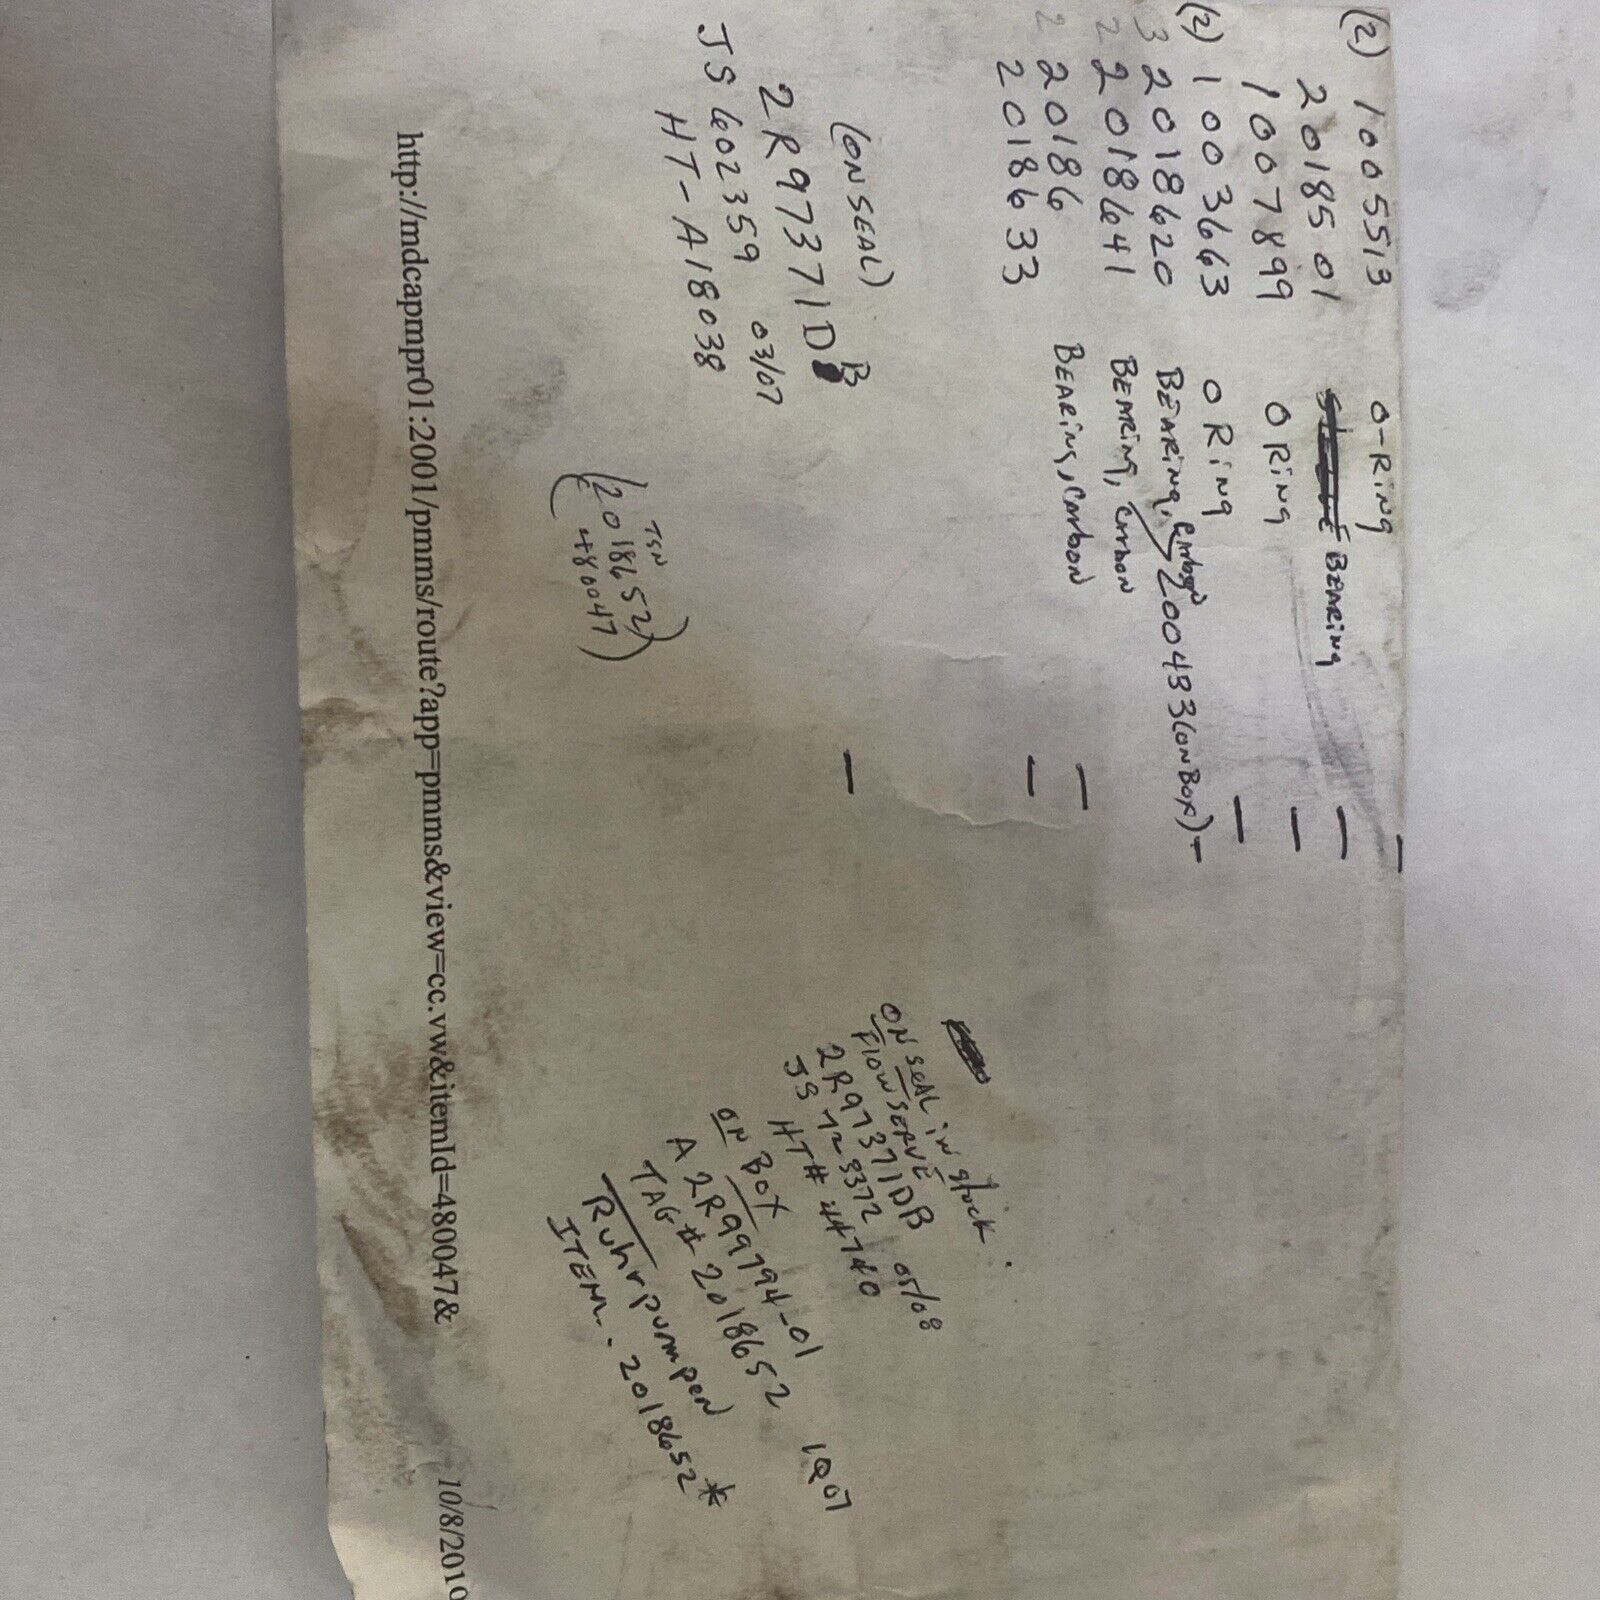 (2) 1005513 O-Ring –
2018501 BEARING –
1007899 O Ring –
(2) 1003663 O Ring –
3 2018620 BEARING, Carbon 200433 (on Box) –
2 2018641 BEARING, Carbon
2 20186 BEARING, Carbon –
2018633 –
(ON SEAL) –
2R97371D B
JS 602359 03/07
HT-A18038
TSN
(2018652)
(480047)
ON SEAL in Stock.
FLOWSERVE
2R97371DB
JS 723372 05/08
HT# 44740
ON BOX
A 2R99794-01 1Q07
TAG # 2018652
Ruhrpumpen
ITEM. 2018652*
http://mdcapmpr01:2001/pmms/route?app=pmms&view=cc.vw&itemId=480047& 10/8/2010